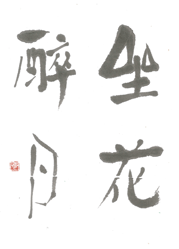 坐花
醉月